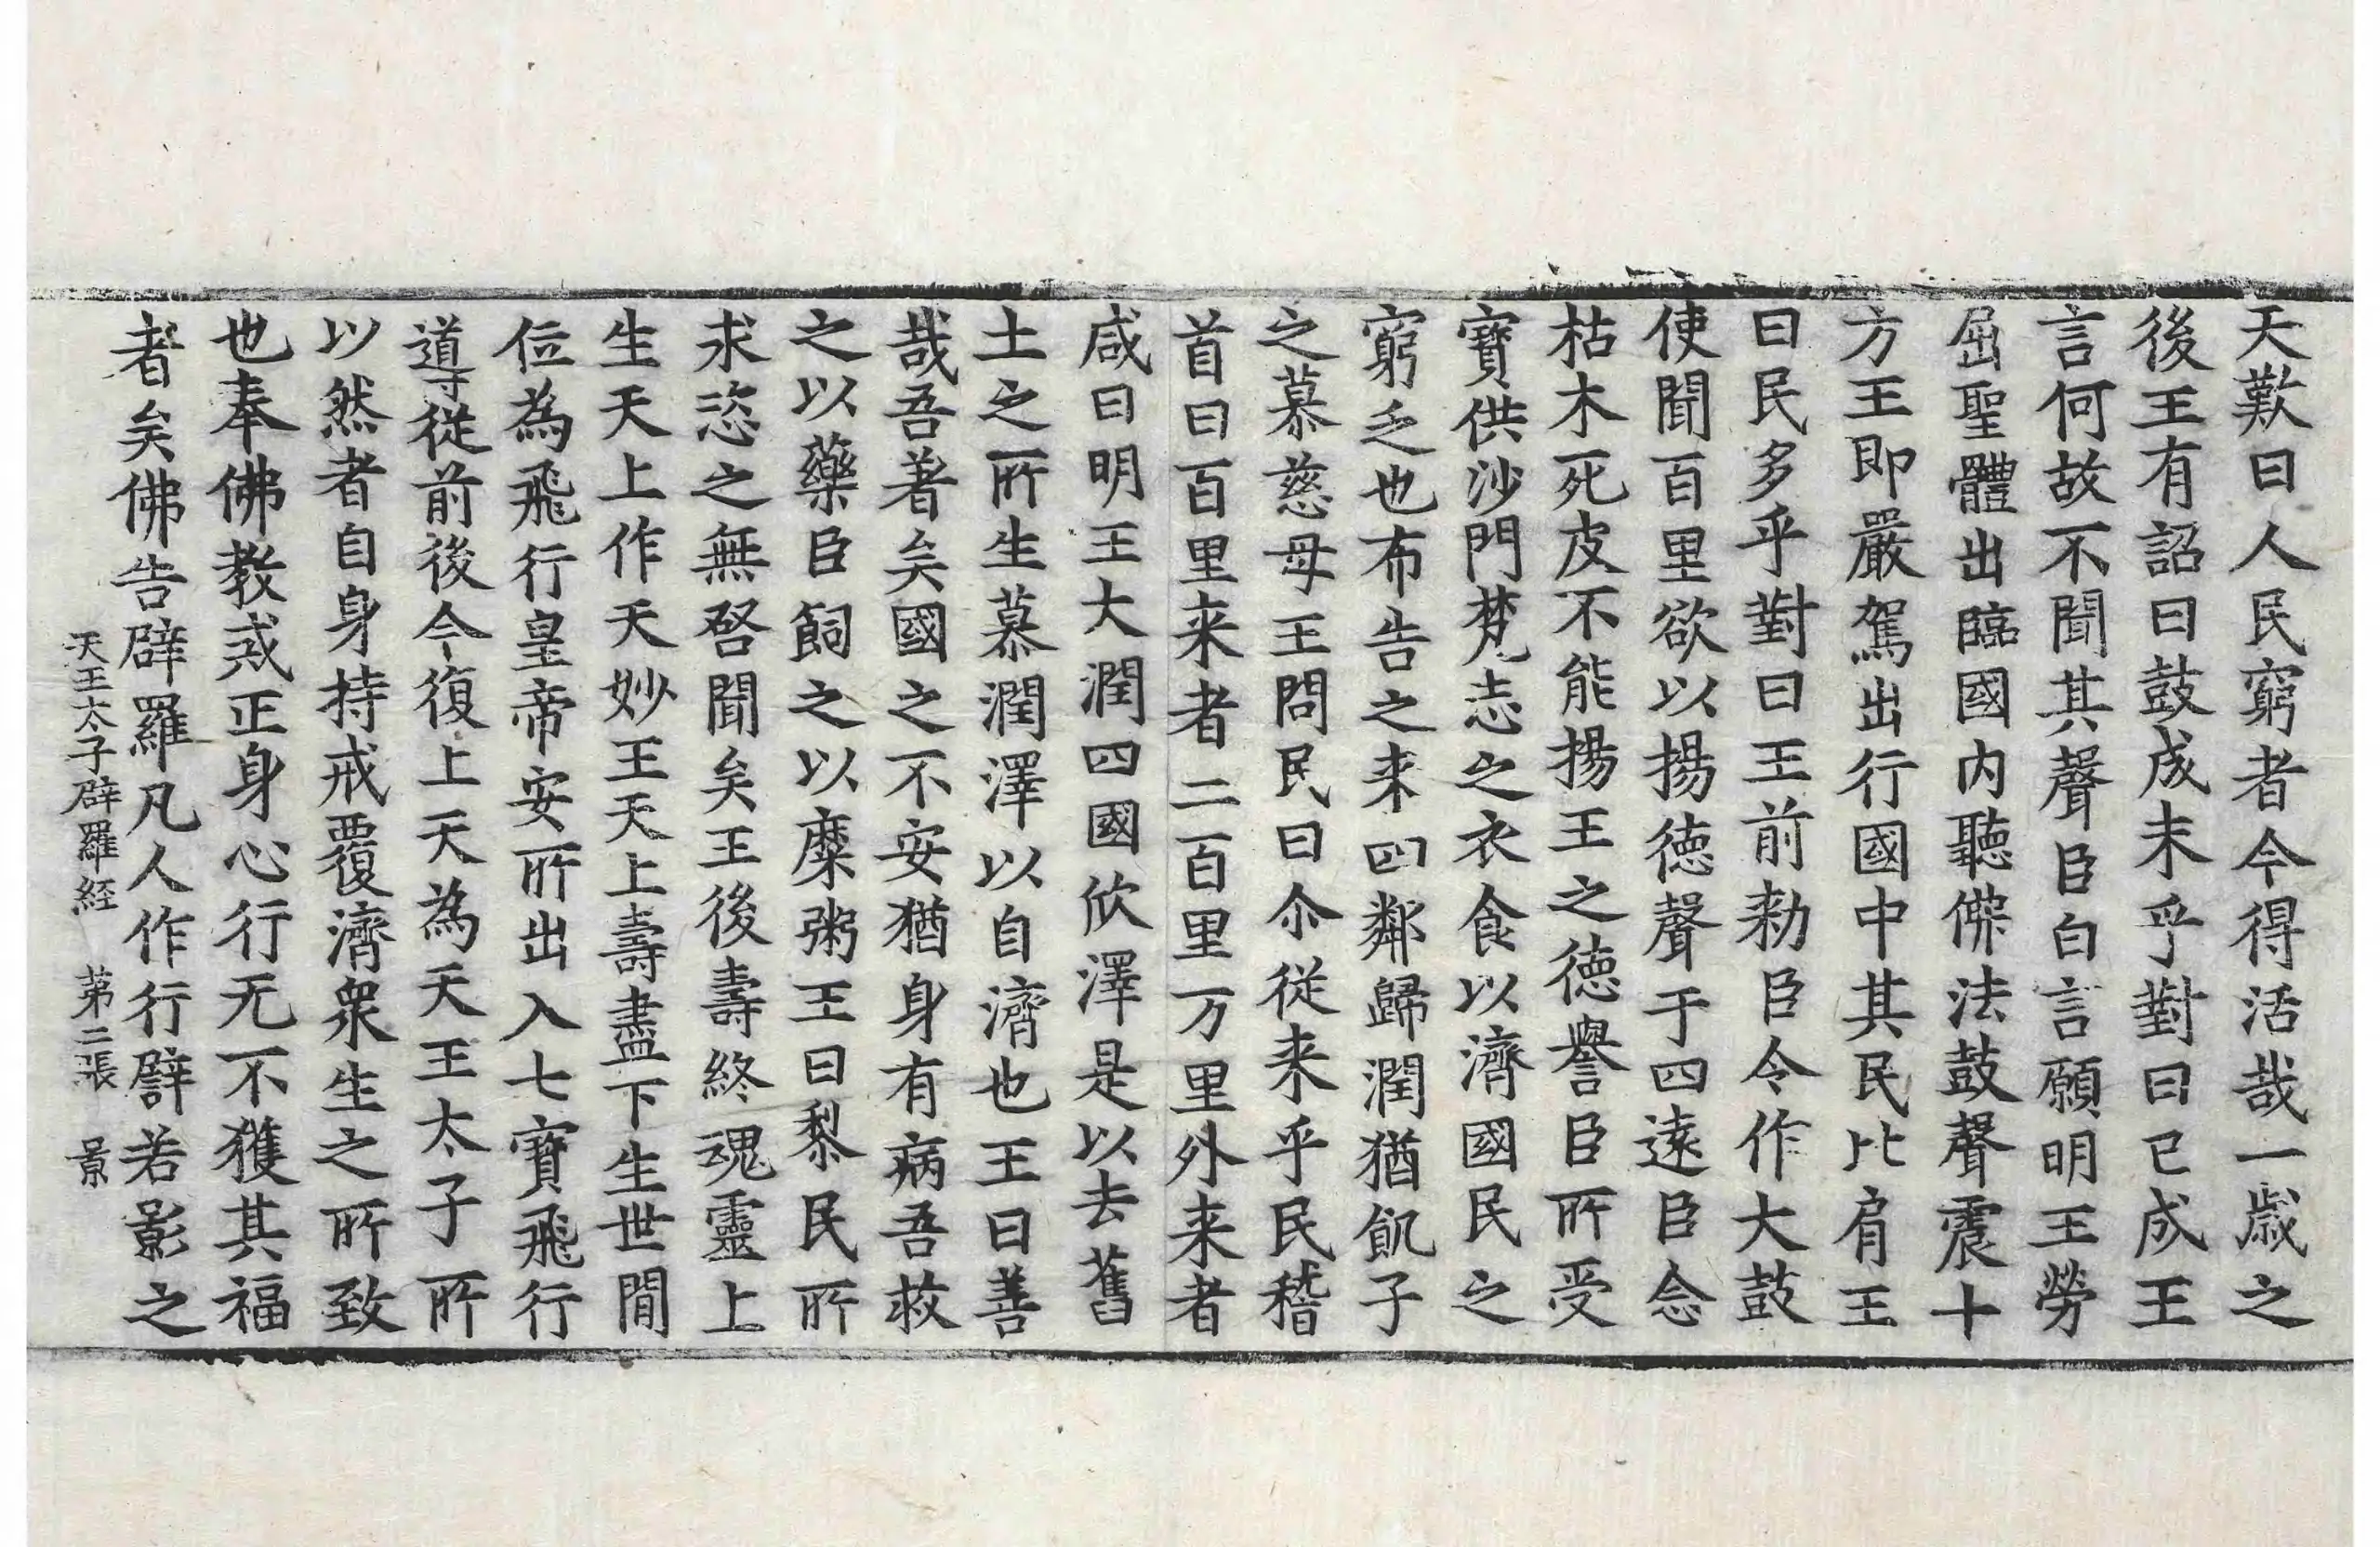 天歎曰人民窮者今得活哉一歲之
後王有詔曰鼓成未乎對曰已成王
言何故不聞其聲臣白言願明王勞
屈聖體出臨國內聽佛法鼓聲震十
方王即嚴駕出行國中其民比肩王
曰民多乎對曰王前勑臣令作大鼓
使聞百里欲以揚德聲于四遠臣念
枯木死皮不能揚王之德譽臣所受
寶供沙門梵志之衣食以濟國民之
窮乏也布告之来四鄰歸潤猶飢子
之慕慈母王問民曰尒從来乎民稽
首曰百里来者二百里万里外来者
咸曰明王大潤四國欣澤是以去舊
土之所生慕潤澤以自濟也王曰善
哉吾著矣國之不安猶身有病吾救
之以藥臣飼之以糜粥王曰黎民所
求恣之無啓聞矣王後壽終魂靈上
生天上作天妙王天上壽盡下生世間
位為飛行皇帝安所出入七寶飛行
導從前後今復上天為天王太子所
以然者自身持戒覆濟衆生之所致
也奉佛教戒正身心行无不獲其福
者矣佛告辟羅凡人作行行譬若影之
天王太子辟羅経　第二張　景